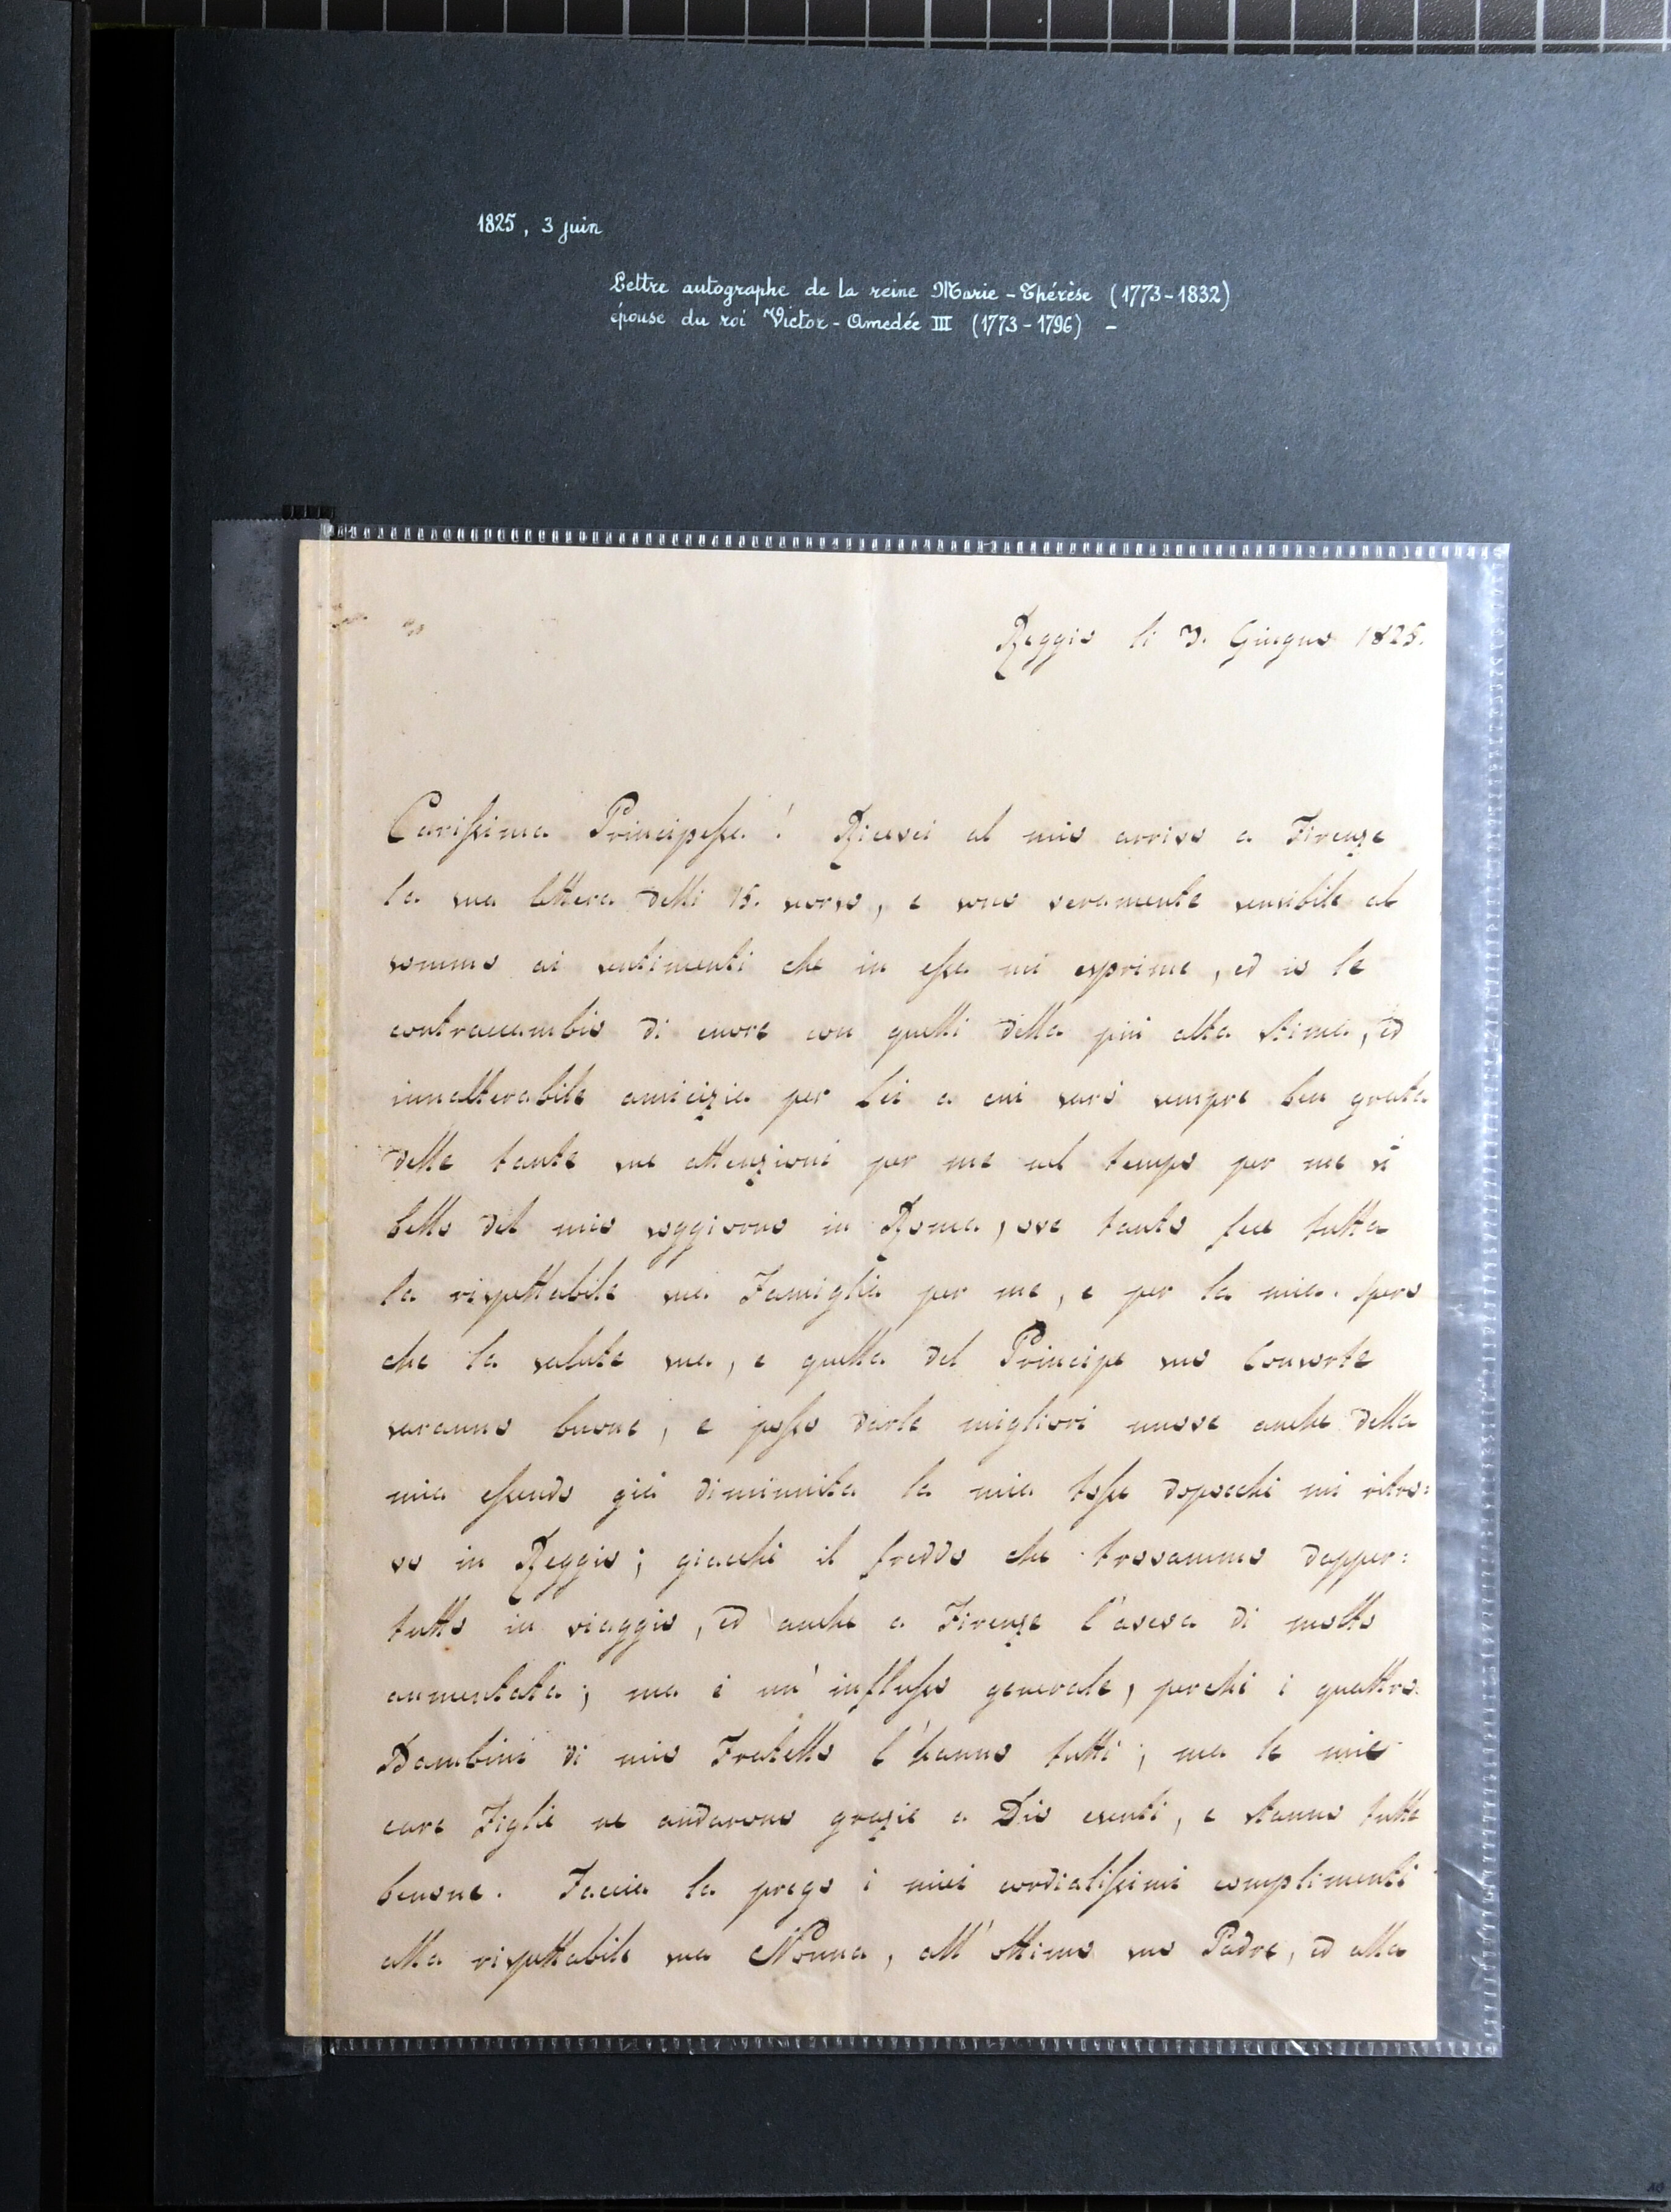 1825, 3 juin
Lettre autographe de la reine Marie-Thérèse (1773-1832)
épouse du roi Victor-Amedée III (1773-1796) -
Reggio li 3. Giugno 1825.
Carissima Principessa! Ricevei al mio arrivo a Firenze
la sua lettera delli 15. scorso, e sono veramente sensibile al
sommo ai sentimenti che in essa mi esprime, ed io le
contraccambio di cuore con quelli della più alta stima, ed
innalterabile amicizia per Lei a cui sarò sempre ben grata
delle tante sue attenzioni per me nel tempo per me sì
bello del mio soggiorno in Roma, ove tanto fece tutta
la rispettabile sua Famiglia per me, e per la mia. Spero
che la salute sua, e quella del Principe suo Consorte
saranno buone, e posso darle migliori nuove anche della
mia essendo già diminuita la mia tosse dopocchè mi ritro:
vo in Reggio; giacchè il freddo che trovammo dapper:
tutto in viaggio, ed anche a Firenze l'aveva di molto
aumentata; ma è un' influsso generale, perchè i quattro
Bambini di mio Fratello l'hanno tutti; ma le mie
care Figlie ne andarono grazie a Dio esenti, e stanno tutte
benone. Faccia la prego i miei cordialissimi complimenti
alla rispettabile sua Nonna, all' ottimo suo Padre, ed alla